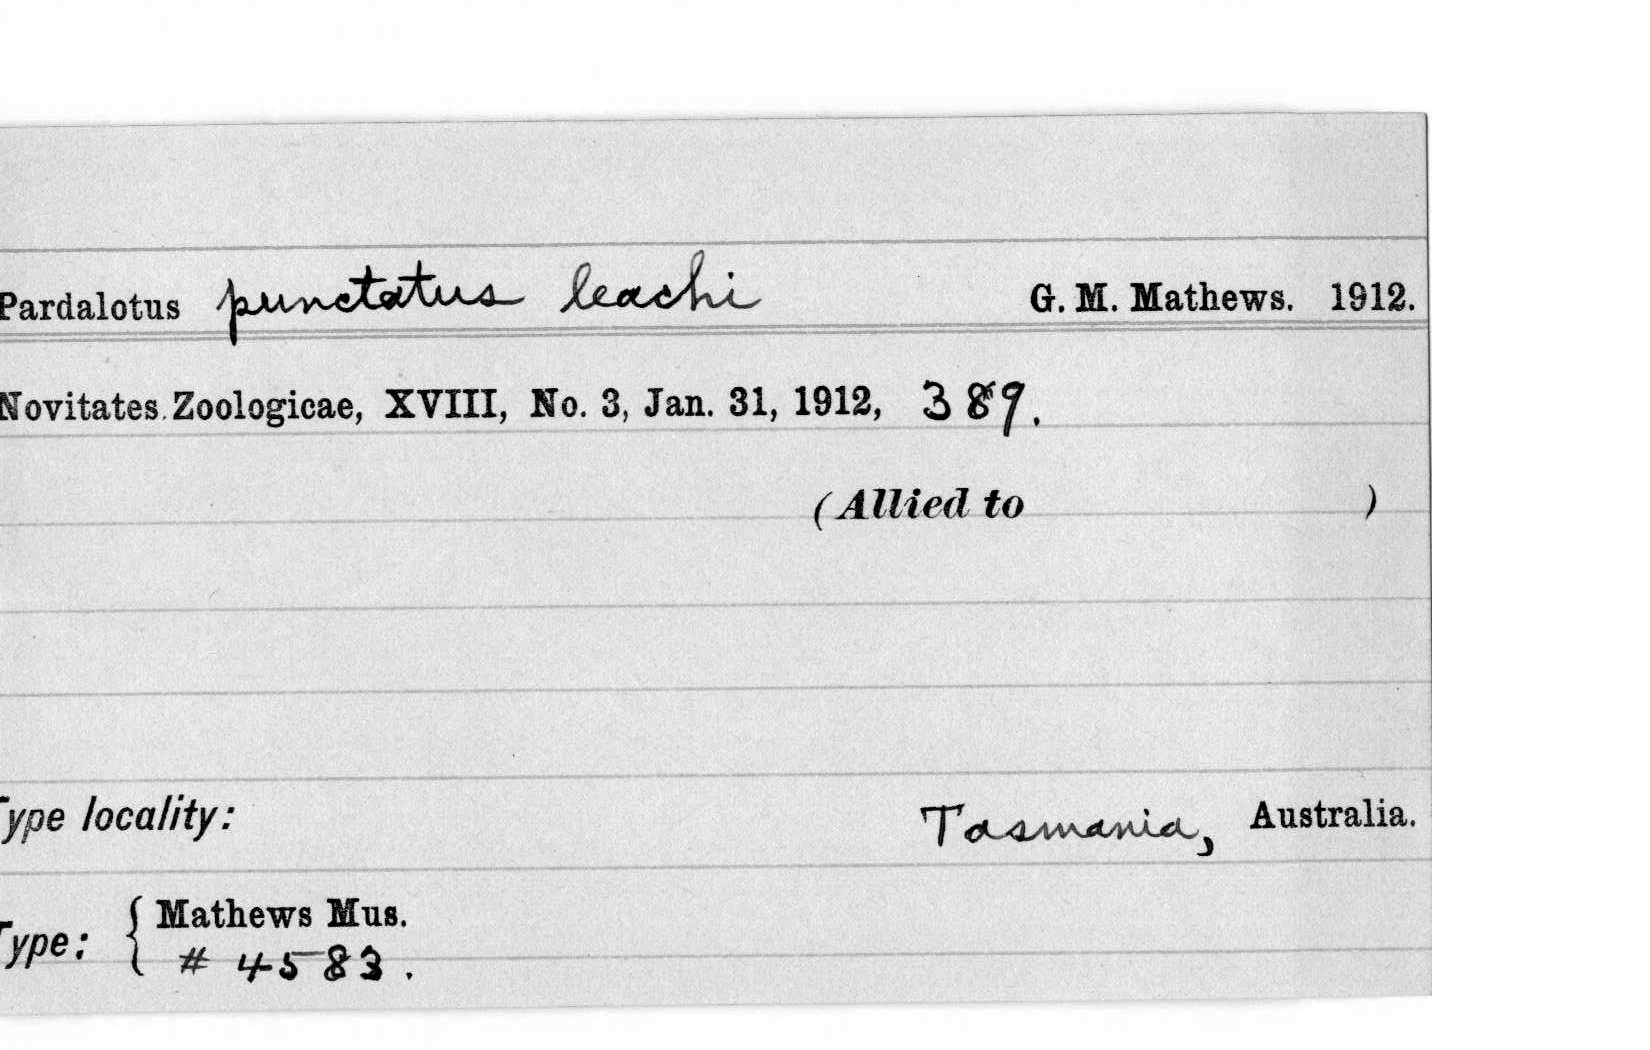 Pardalotus punctatus leachi G. M. Mathews. 1912.
Novitates Zoologicae, XVIII, No. 3, Jan. 31, 1912, 389.
(Allied to )
Type locality: Tasmania, Australia.
Type: { Mathews Mus.
# 4583.